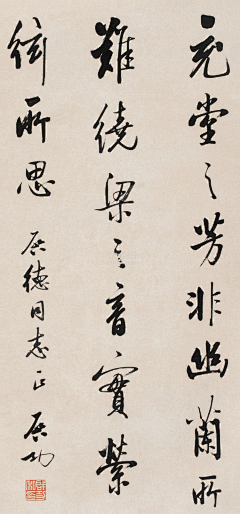 充堂之芳非幽蘭所
難繞梁之音實縈
絃所思
启德同志正 启功